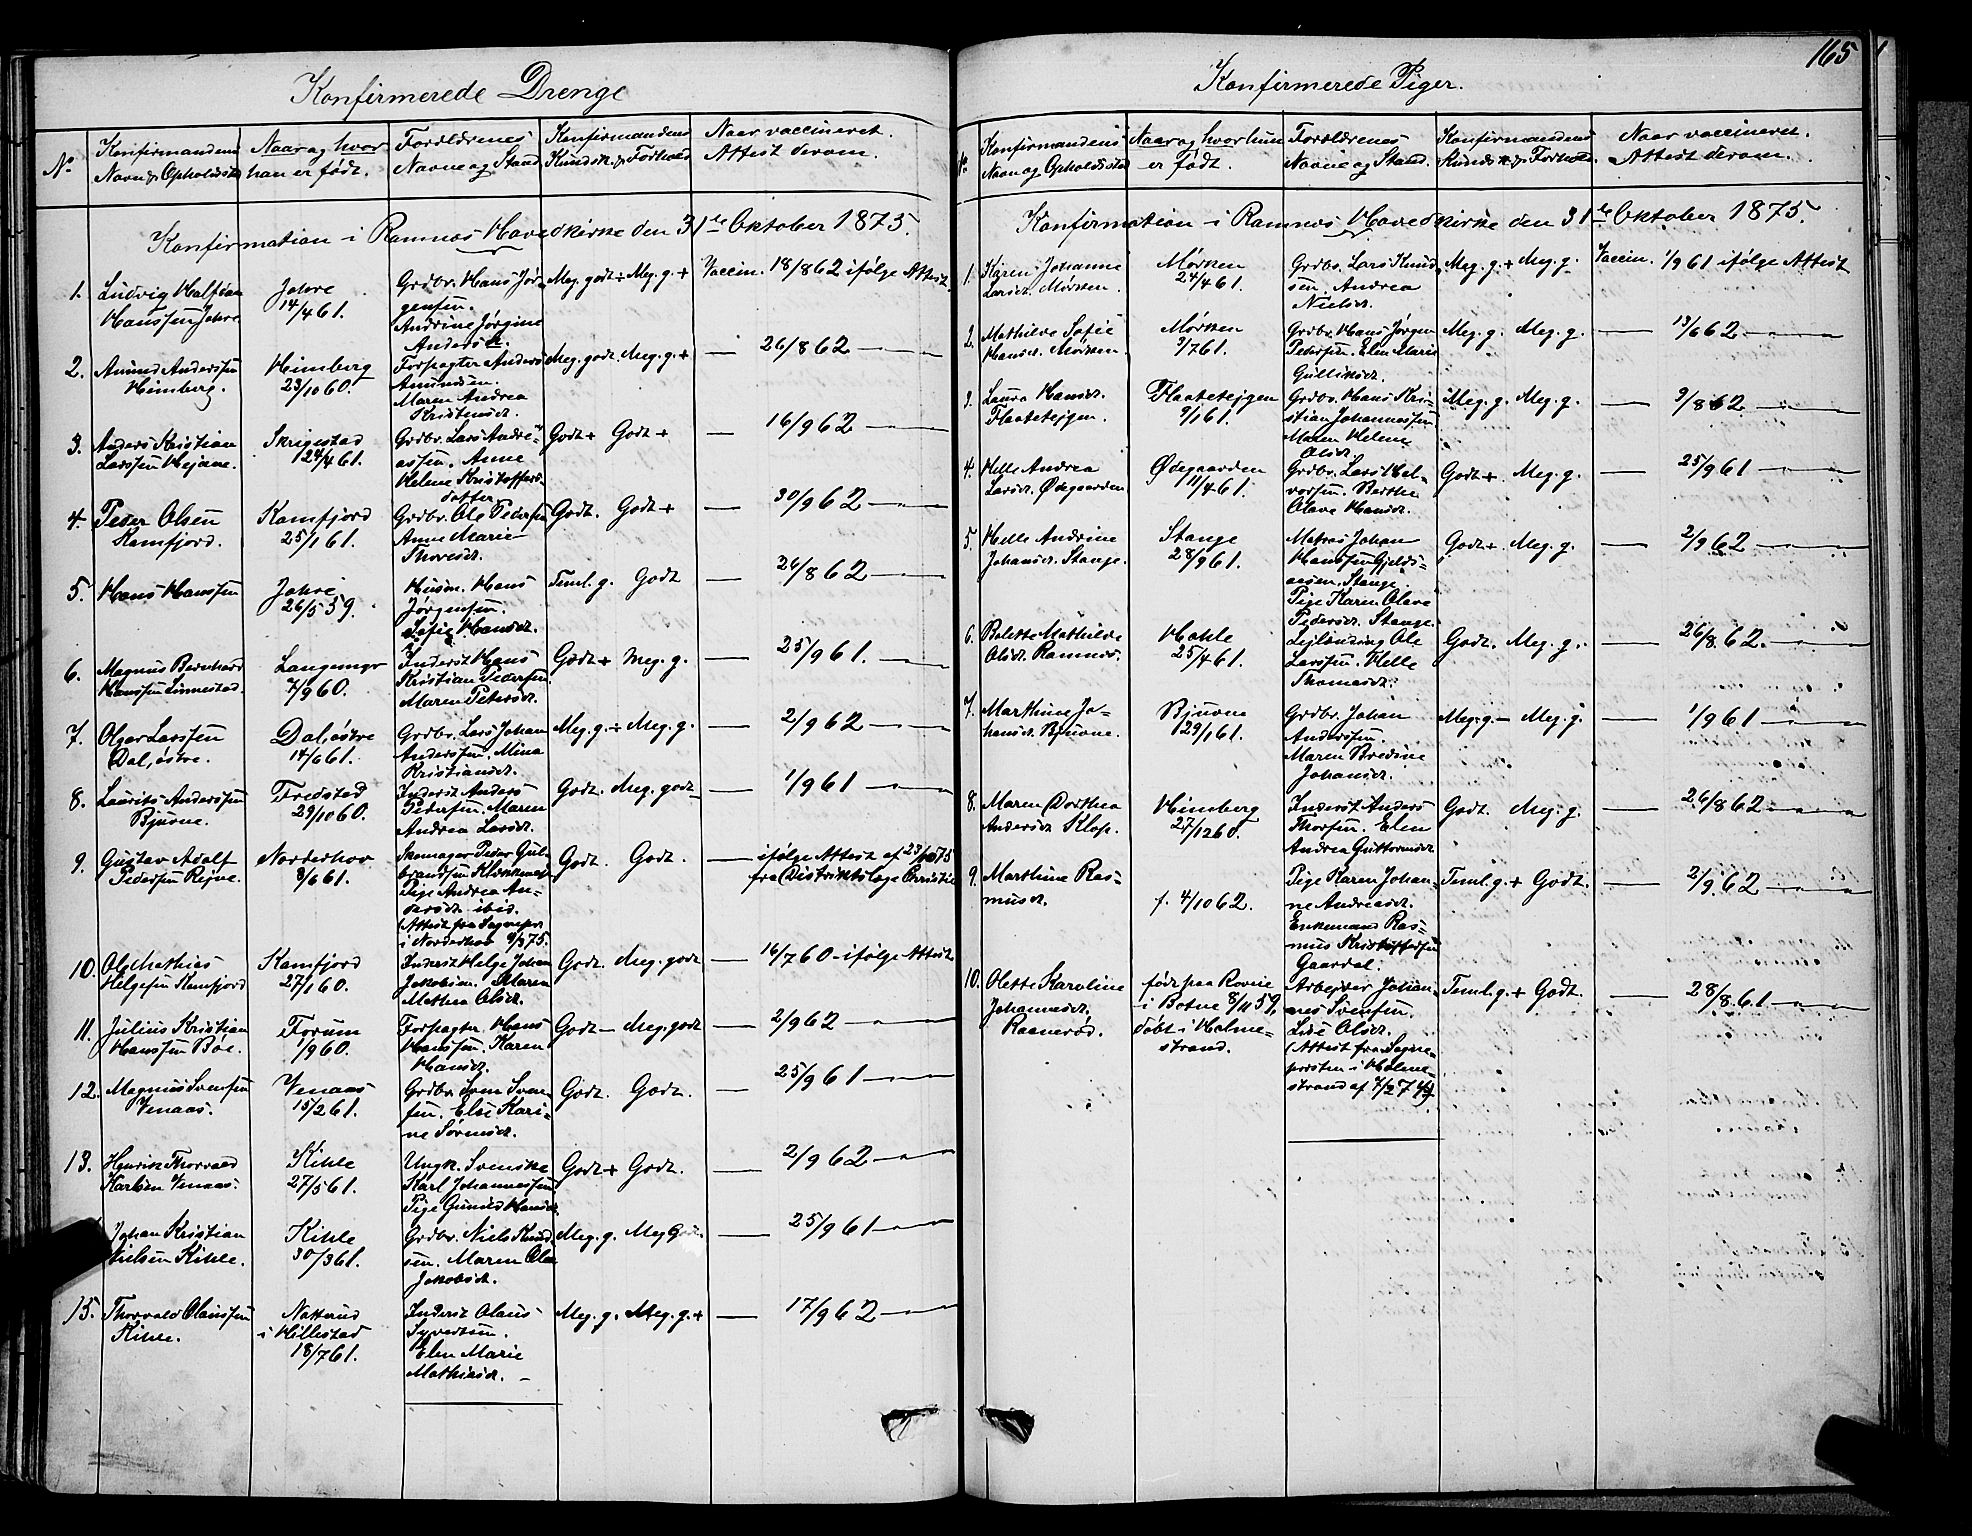 165
Konfirmerede Drenge
No
Konfirmandens
Navn og Opholdssted
Naar og hvor
han er født.
Forældrenes
Navne og Stand
Konfirmandens
Kundsk. og Forhold
Naar vaccineret.
Attest derom.
Konfirmation i Ramnæs Hovedkirke den 31te Oktober 1875.
1.
Ludvig
Hanssen Jahre
Jahre
14/4 61.
Grdbr. Hans Jør-
gensen.
Andrine Jørgine
Andersdt.
Meg. godt ÷ Meg. g. +
Vaccin. 18/8 62 ifølge Attest.
2.
Amund Anderssen
Himberg.
Himberg
23/10 60.
Forpagter Anders
Amundsen.
Maren Andrea
Kristensdt.
Meg. godt. Meg. g. +
— 26/8 62 — " — " —
3.
Anders Kristian
Larssen Hejane.
Skrigestad
24/4 61.
Grdbr. Lars Andre-
assen. Anne
Helene Kristoffers-
datter
Godt + Godt +
— 16/9 62 — " — " —
4.
Peder Olsen
Kamfjord.
Kamfjord
25/1 61.
Grdbr. Ole Pedersen
Anne Marie
Thoresdt.
Godt. Godt +
— 30/9 62 — " — " —
5.
Hans Hanssen
Jahre
26/5 59.
Husm. Hans
Jørgensen.
Sofie Hansdt.
Teml. g. Godt
— 26/8 62 — " — " —
6.
Magnus Bernhard
Hanssen Linnestad.
Langemyr
7/9 60.
Inderst Hans
Kristian Pedersen.
Maren Petersdt.
Godt + Meg. g.
— 25/9 61. — " — " —
7.
Olger Larssen
Dal, østre.
Dal, østre
14/6 61.
Grdbr. Lars Johan
Anderssen. Mina
Kristiansdt.
Meg. g. ÷ Meg. g.
— 2/9 62 — " — " —
8.
Laurits Anderssen
Bjuone.
Fredstad
29/10 60.
Inderst Anders
Pedersen. Maren
Andrea Larsdt.
Godt. Meg. godt
— 1/9 61 — " — " —
9.
Gustav Adolf
Pedersen Rejne.
Norderhov
8/6 61.
Skomager Peder Gul-
brandsen
Pige Andrea An-
dersdt. ibid.
Attest fra Sognepr.
i Norderhov 9/3 75.
Godt. Godt.
— ifølge Attest af 23/10 75
fra Distriktslæge Christie
10.
Ole Mathias
Helgesen Kamfjord
Kamfjord
27/1 60.
Inderst Helge Johan
Jakobsen. Maren
Mathea Olsdt.
Godt. Meg. godt
— 16/7 60 — ifølge Attest
11.
Julius Kristian
Hanssen Bøe.
Forum
1/9 60.
Forpagter Hans
Hanssen. Karen
Hansdt.
Godt — Meg. godt
— 2/9 62 — " — " —
12.
Magnus Svensen
Venaas.
Venaas
15/2 61.
Grdbr. Sven Sven-
sen. Else Kari-
ne Sørensdt.
Godt. Godt.
— 25/9 61 — " — " —
13.
Henrik Thorvald
Karlsen Venaas.
Kihle
27/5 61.
Ungk. Svenske
Karl Johannessen
Pige Gunild Hansdt.
Godt + Godt.
— 2/9 62 — " — " —
Johan Kristian
Nielsen Kihle.
Kihle
30/3 61.
Grdbr. Niels Knud-
sen. Maren Olea
Jakobsdt.
Meg. g. Meg
— 25/9 61 — " — " —
15.
Thorvald Olaussen
Kihle.
Nattrud
i Hillestad
18/7 61.
Inderst Olaus
Syvertsen.
Elen Marie
Mathiasdt. —
Meg. g. Meg. g. +
— 17/9 62 — " — " —
Konfirmerede Piger.
No
Konfirmandens
Navn og Opholdssted
Naar og hvor hun
er født.
Forældrenes
Navne og Stand.
Konfirmandens
Kundsk. og Forhold
Naar vaccineret.
Attest derom.
Konfirmation i Ramnæs Hovedkirke den 31te Oktober 1875.
1.
Karen Johanne
Larsdt. Mørken.
Mørken
24/4 61.
Grdbr. Lars Knud-
sen. Andrea
Nielsdt.
Meg. g. + Meg. g.
Vaccin. 1/9 61 ifølge Attest
2.
Mathilde Sofie
Hansdt. Mørken.
Mørken
3/7 61.
Grdbr. Hans Jørgen
Pedersen. Elen Marie
Gulliksdt.
Meg. g. Meg. g.
— 13/6 62 — " — " —
3.
Laura Hansdt.
Flaatetejgen.
Flaatetejgen
9/1 61.
Grdbr. Hans Kri-
stian Johannessen
Maren Helene
Olsdt.
Meg. g. Meg. g.
— 9/8 62 — " — " —
4.
Helle Andrea
Larsdt. Ødegaarden
Ødegaarden
11/4 61.
Grdbr. Lars Hal-
vorsen. Berthe
Olave Hansdt.
Godt +. Meg. g.
— 25/9 61 — " — " —
5.
Helle Andrine
Johansdt. Stange.
Stange
28/9 61.
Matros Johan
Hanssen Gjelds-
aasen. Stange.
Pige Karen Olave
Pedersdt. Stange.
Godt +. Meg. g.
— 2/9 62 — " — " —
6.
Bolette Mathilde
Olsdt. Ramnæs.
Hohle
25/4 61.
Lejlænding Ole
Larssen. Helle
Thomasdt.
Godt. Meg. g.
— 26/8 62. — " — " —
7.
Marthine Jo-
hansdt. Bjuone.
Bjuone
29/1 61.
Grdbr. Johan
Anderssen.
Maren Bredine
Johansdt.
Meg. g — Meg. g.
— 1/9 61 — " — " —
8.
Maren Dorthea
Andersdt. Klop.
Himberg
27/12 60.
Inderst Anders
Thorsen. Elen
Andrea Guttormsdt
Godt. Meg. g.
— 26/8 62 — " — " —
9.
Marthine Ras-
musdt.
f. 4/10 62.
Pige Karen Johan-
ne Andreasdt.
Enkemand Ras-
mus Kristoffersen
Gaardal.
Teml. g. + Godt.
— 2/9 62 — " — " —
10.
Olette Karoline
Johannesdt.
Raanerød.
født paa Rovne
i Botne 8/11 59,
døbt i Holme-
strand.
Arbejder Johan-
nes Svensen.
Lise Olsdt.
(Attest fra Sogne-
præsten i Holme-
strand af 7/2 74)
Teml. g. + Godt.
— 28/8 61. — " — " —